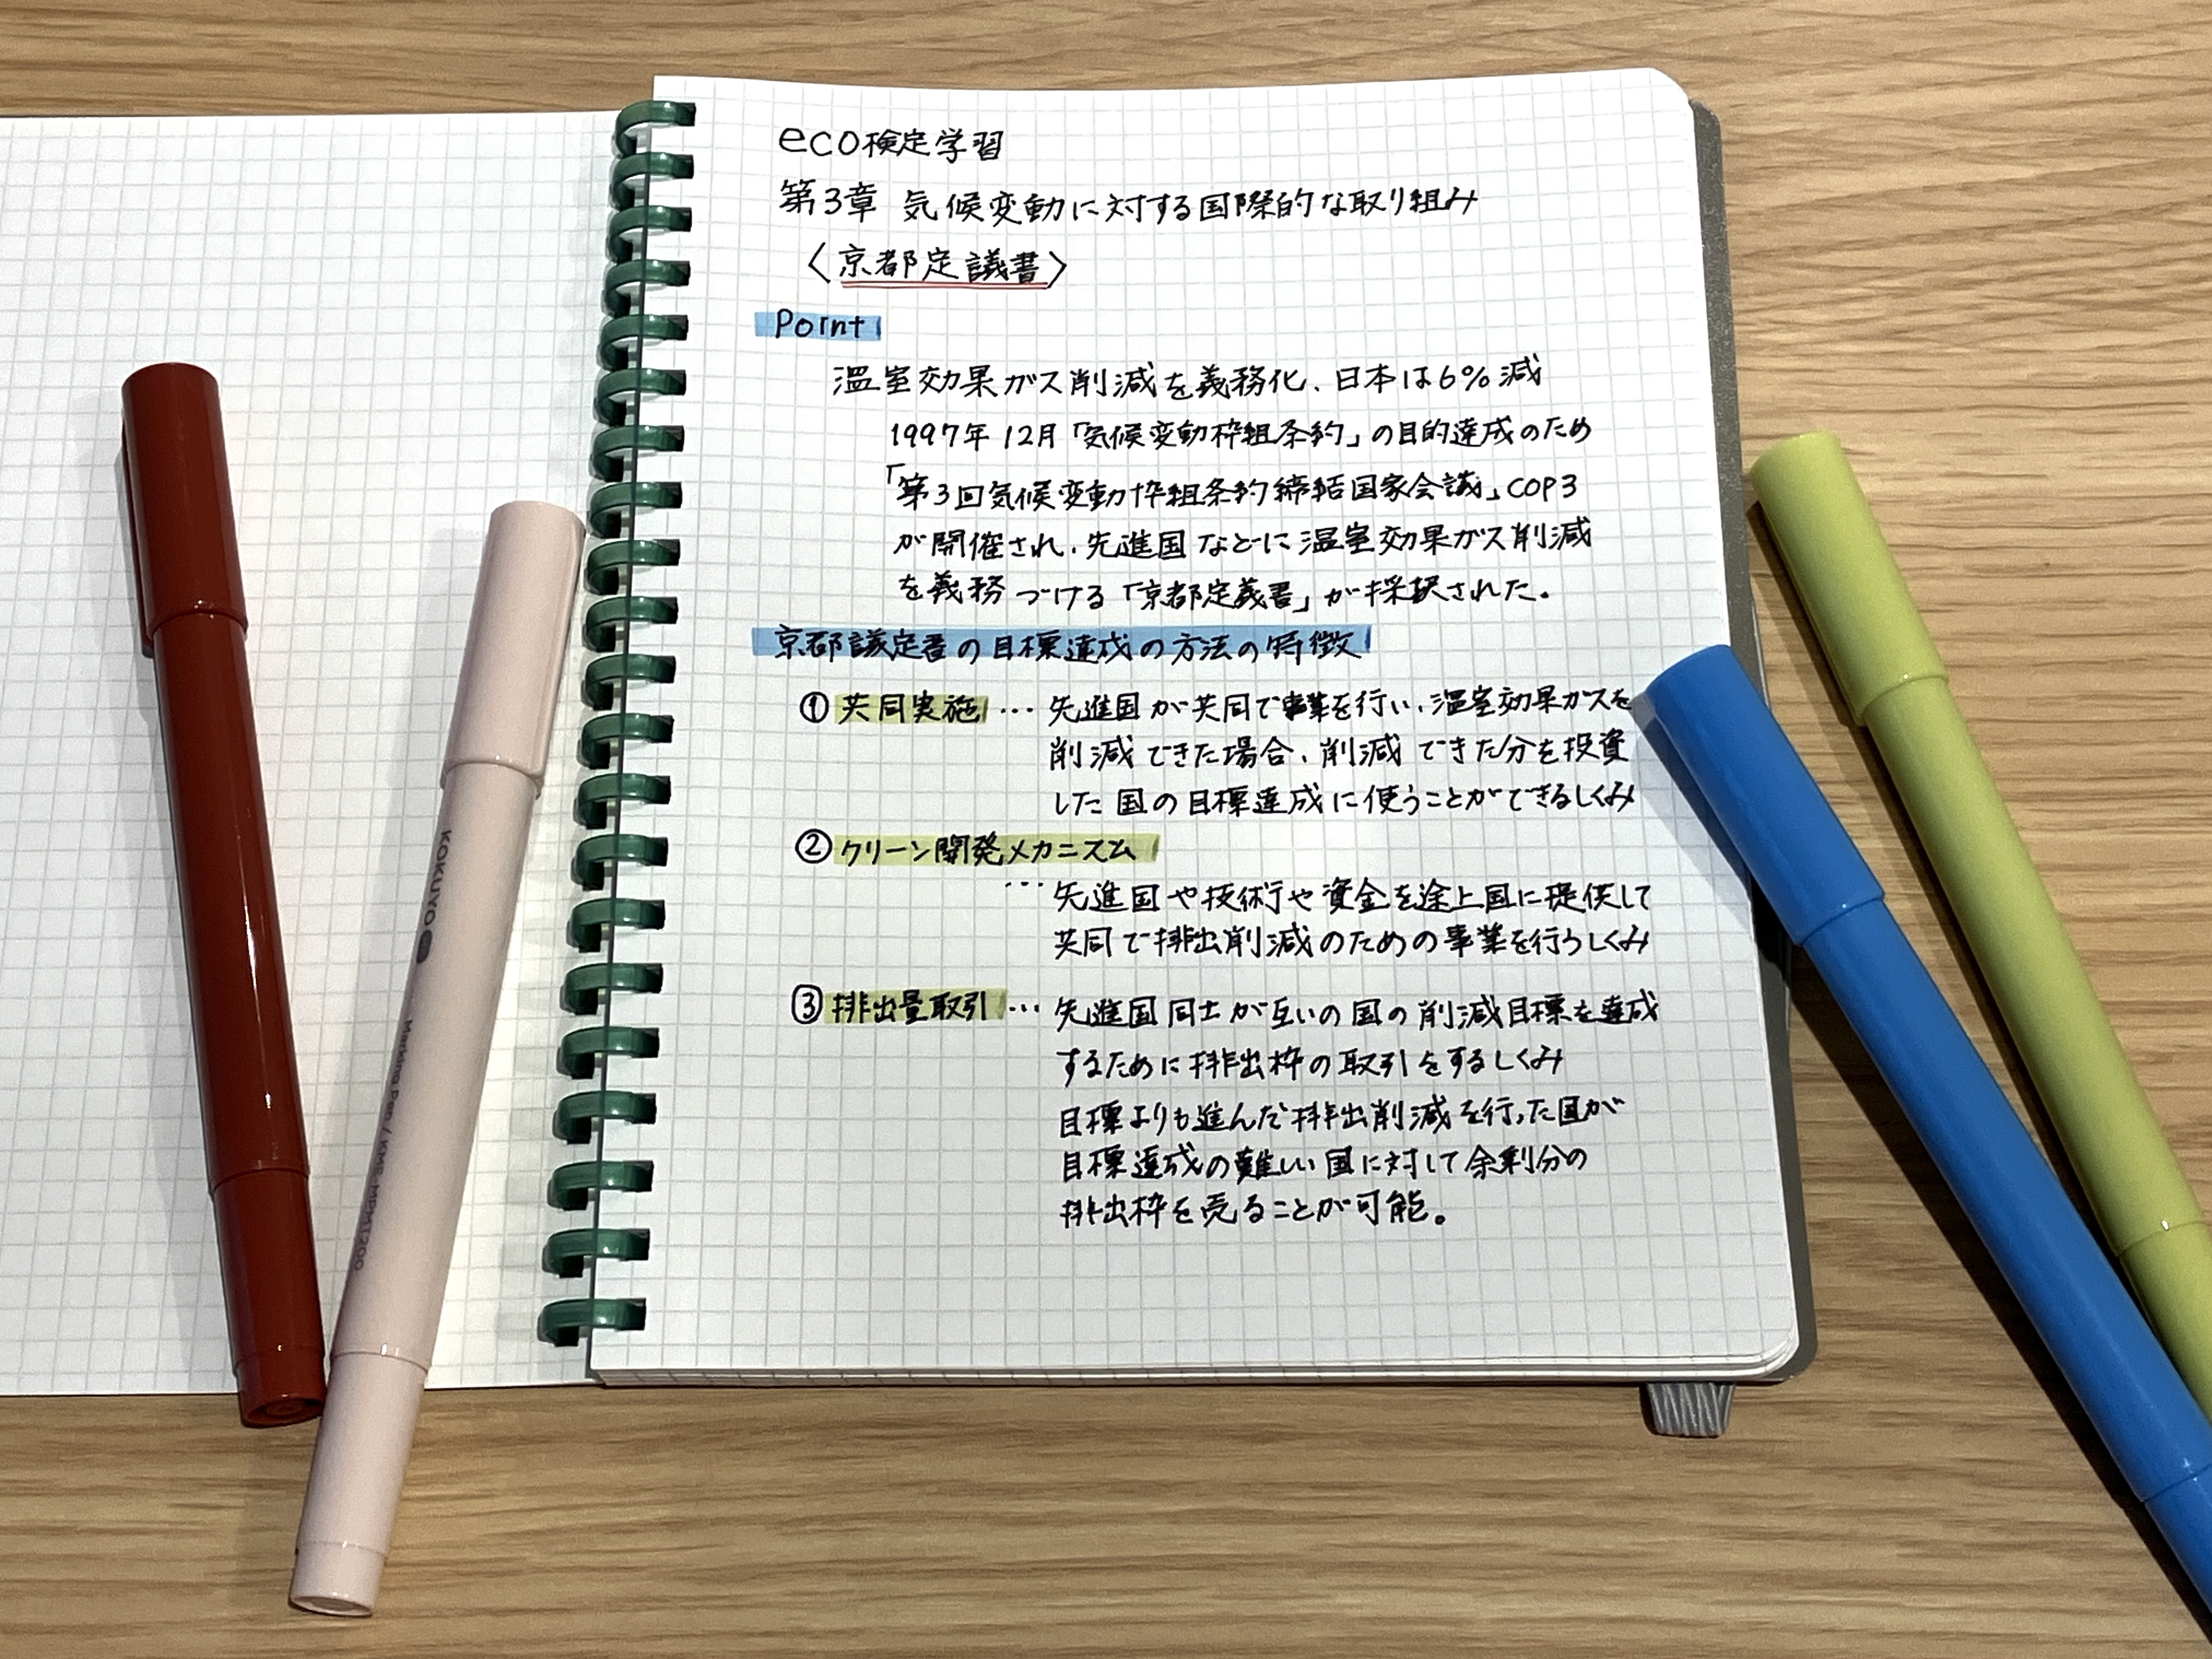 eco検定学習
第3章 気候変動に対する国際的な取り組み
〈京都定議書〉
Point
温室効果ガス削減を義務化、日本は6%減
1997年12月「気候変動枠組条約」の目的達成のため
「第3回気候変動枠組条約締結国家会議」COP3
が開催され、先進国などに温室効果ガス削減
を義務づける「京都定義書」が採択された。
京都議定書の目標達成の方法の特徴
① 共同実施 … 先進国が共同で事業を行い、温室効果ガスを
削減できた場合、削減できた分を投資
した国の目標達成に使うことができるしくみ
② クリーン開発メカニズム
… 先進国や技術や資金を途上国に提供して
共同で排出削減のための事業を行うしくみ
③ 排出量取引 … 先進国同士が互いの国の削減目標を達成
するために排出枠の取引をするしくみ
目標よりも進んだ排出削減を行った国が
目標達成の難しい国に対して余剰分の
排出枠を売ることが可能。
KOKUYO
Marking Pen / KME-MPM1200